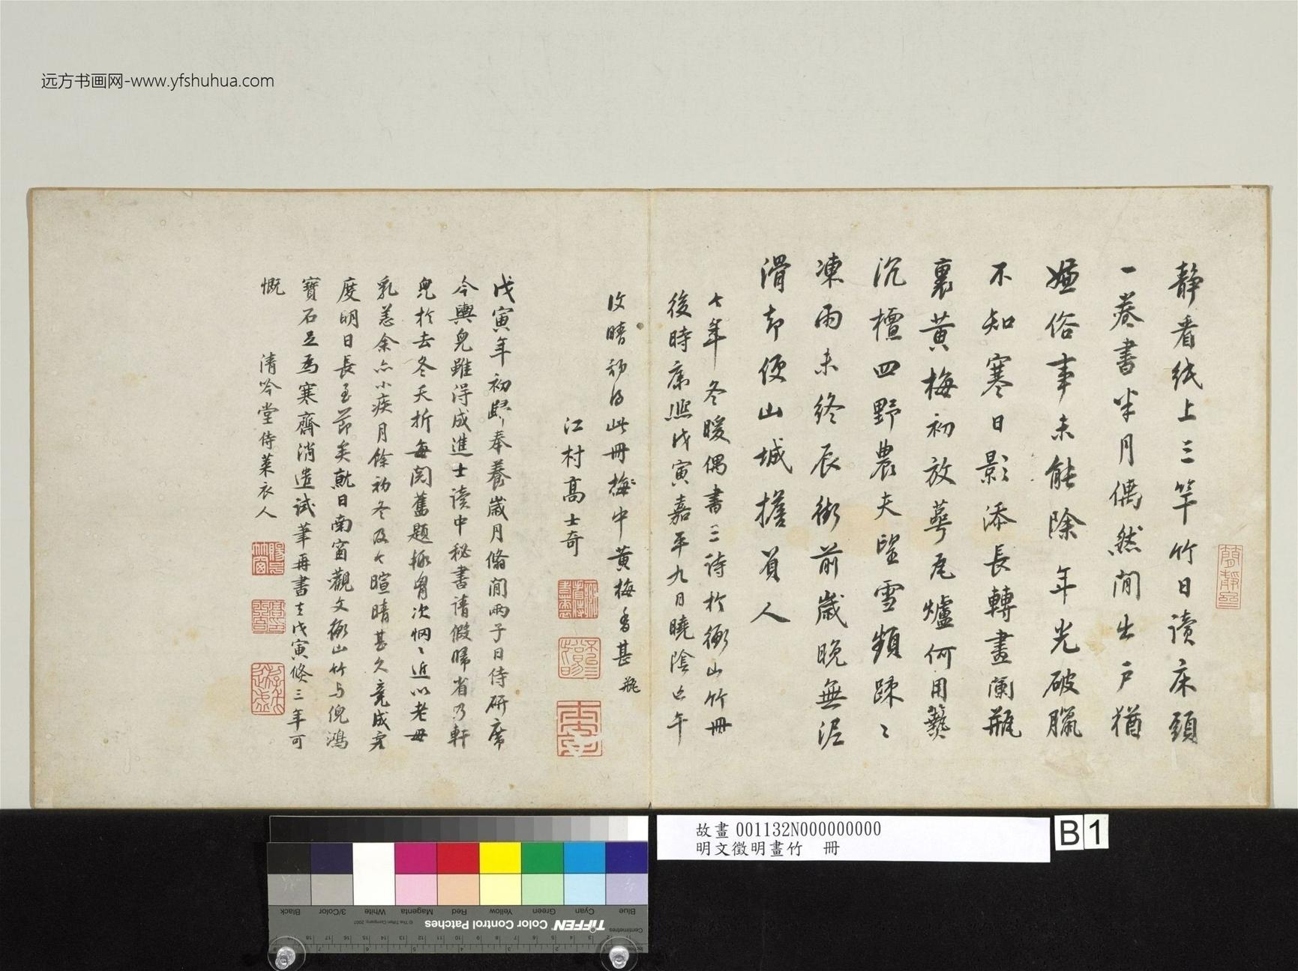 远方书画网-www.yfshuhua.com
静看纸上三竿竹日读床頭
一卷書半月偶然閒出户猶
嫌俗事未能除年光破臘
不知寒日影添長轉畫闌瓶
裏黄梅初放萼瓦爐何用爇
沉檀四野農夫望雪頻踈〻
凍雨未終辰街前歲晚無泥
滑却便山城擔負人
七年冬暖偶書三詩於衡山竹冊
後時康熙戊寅嘉平九日曉陰迄午
此冊梅中黄梅香甚瓶
江村高士奇
戊寅年初歸奉養歲月脩閒兩子日侍研席
今輿兒雖得成進士讀中秘書請假歸省乃軒
兒於去冬夭折每閱舊題輒胷次惘〻近以老母
乳恙余亦小疾月餘初冬及七暄晴甚久竟成亢
度明日長至節矣就日南窗觀文衡山竹与倪鴻
寶石足為寒齋消遣試筆再書去戊寅倏三年可
慨
清吟堂侍萊衣人
故畫 001132N000000000
明文徵明畫竹 冊
B1
Blue Cyan Green Yellow Red Magenta White 3/Color Black
TIFFEN Color Control Patches